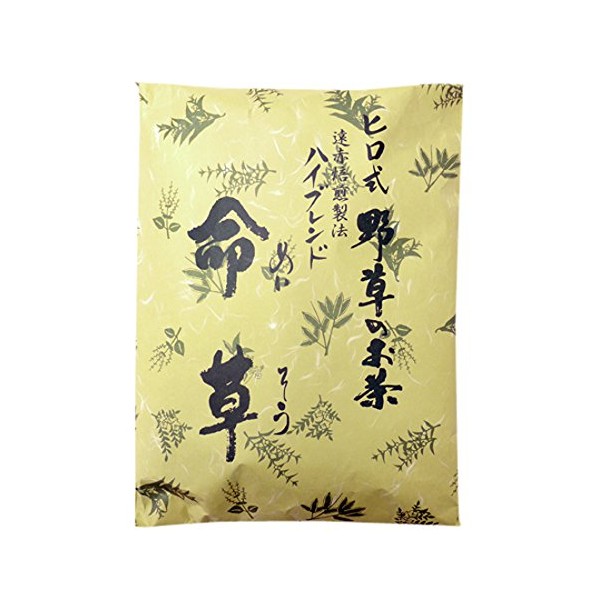 ヒロ式 野草のお茶
遠赤焙煎製法
ハイブレンド
命草
めいそう